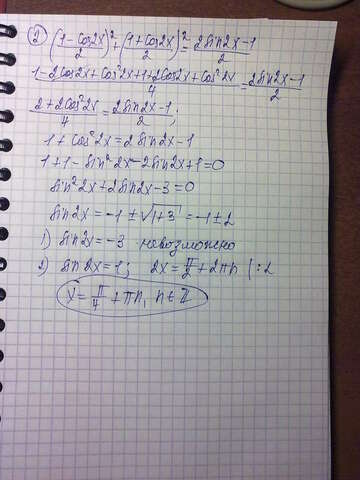 ② ((1-cos2x)/2)² + ((1+cos2x)/2)² = (2sin2x-1)/2
(1-2cos2x+cos²2x+1+2cos2x+cos²2x)/4 = (2sin2x-1)/2
(2+2cos²2x)/4 = (2sin2x-1)/2;
1+cos²2x = 2sin2x-1
1+1-sin²2x-2sin2x+1=0
sin²2x+2sin2x-3=0
sin2x = -1 ± √1+3 = -1±2
1) sin2x = -3 невозможно
2) sin2x=1; 2x = π/2 + 2πn |:2
x = π/4 + πn, n∈Z